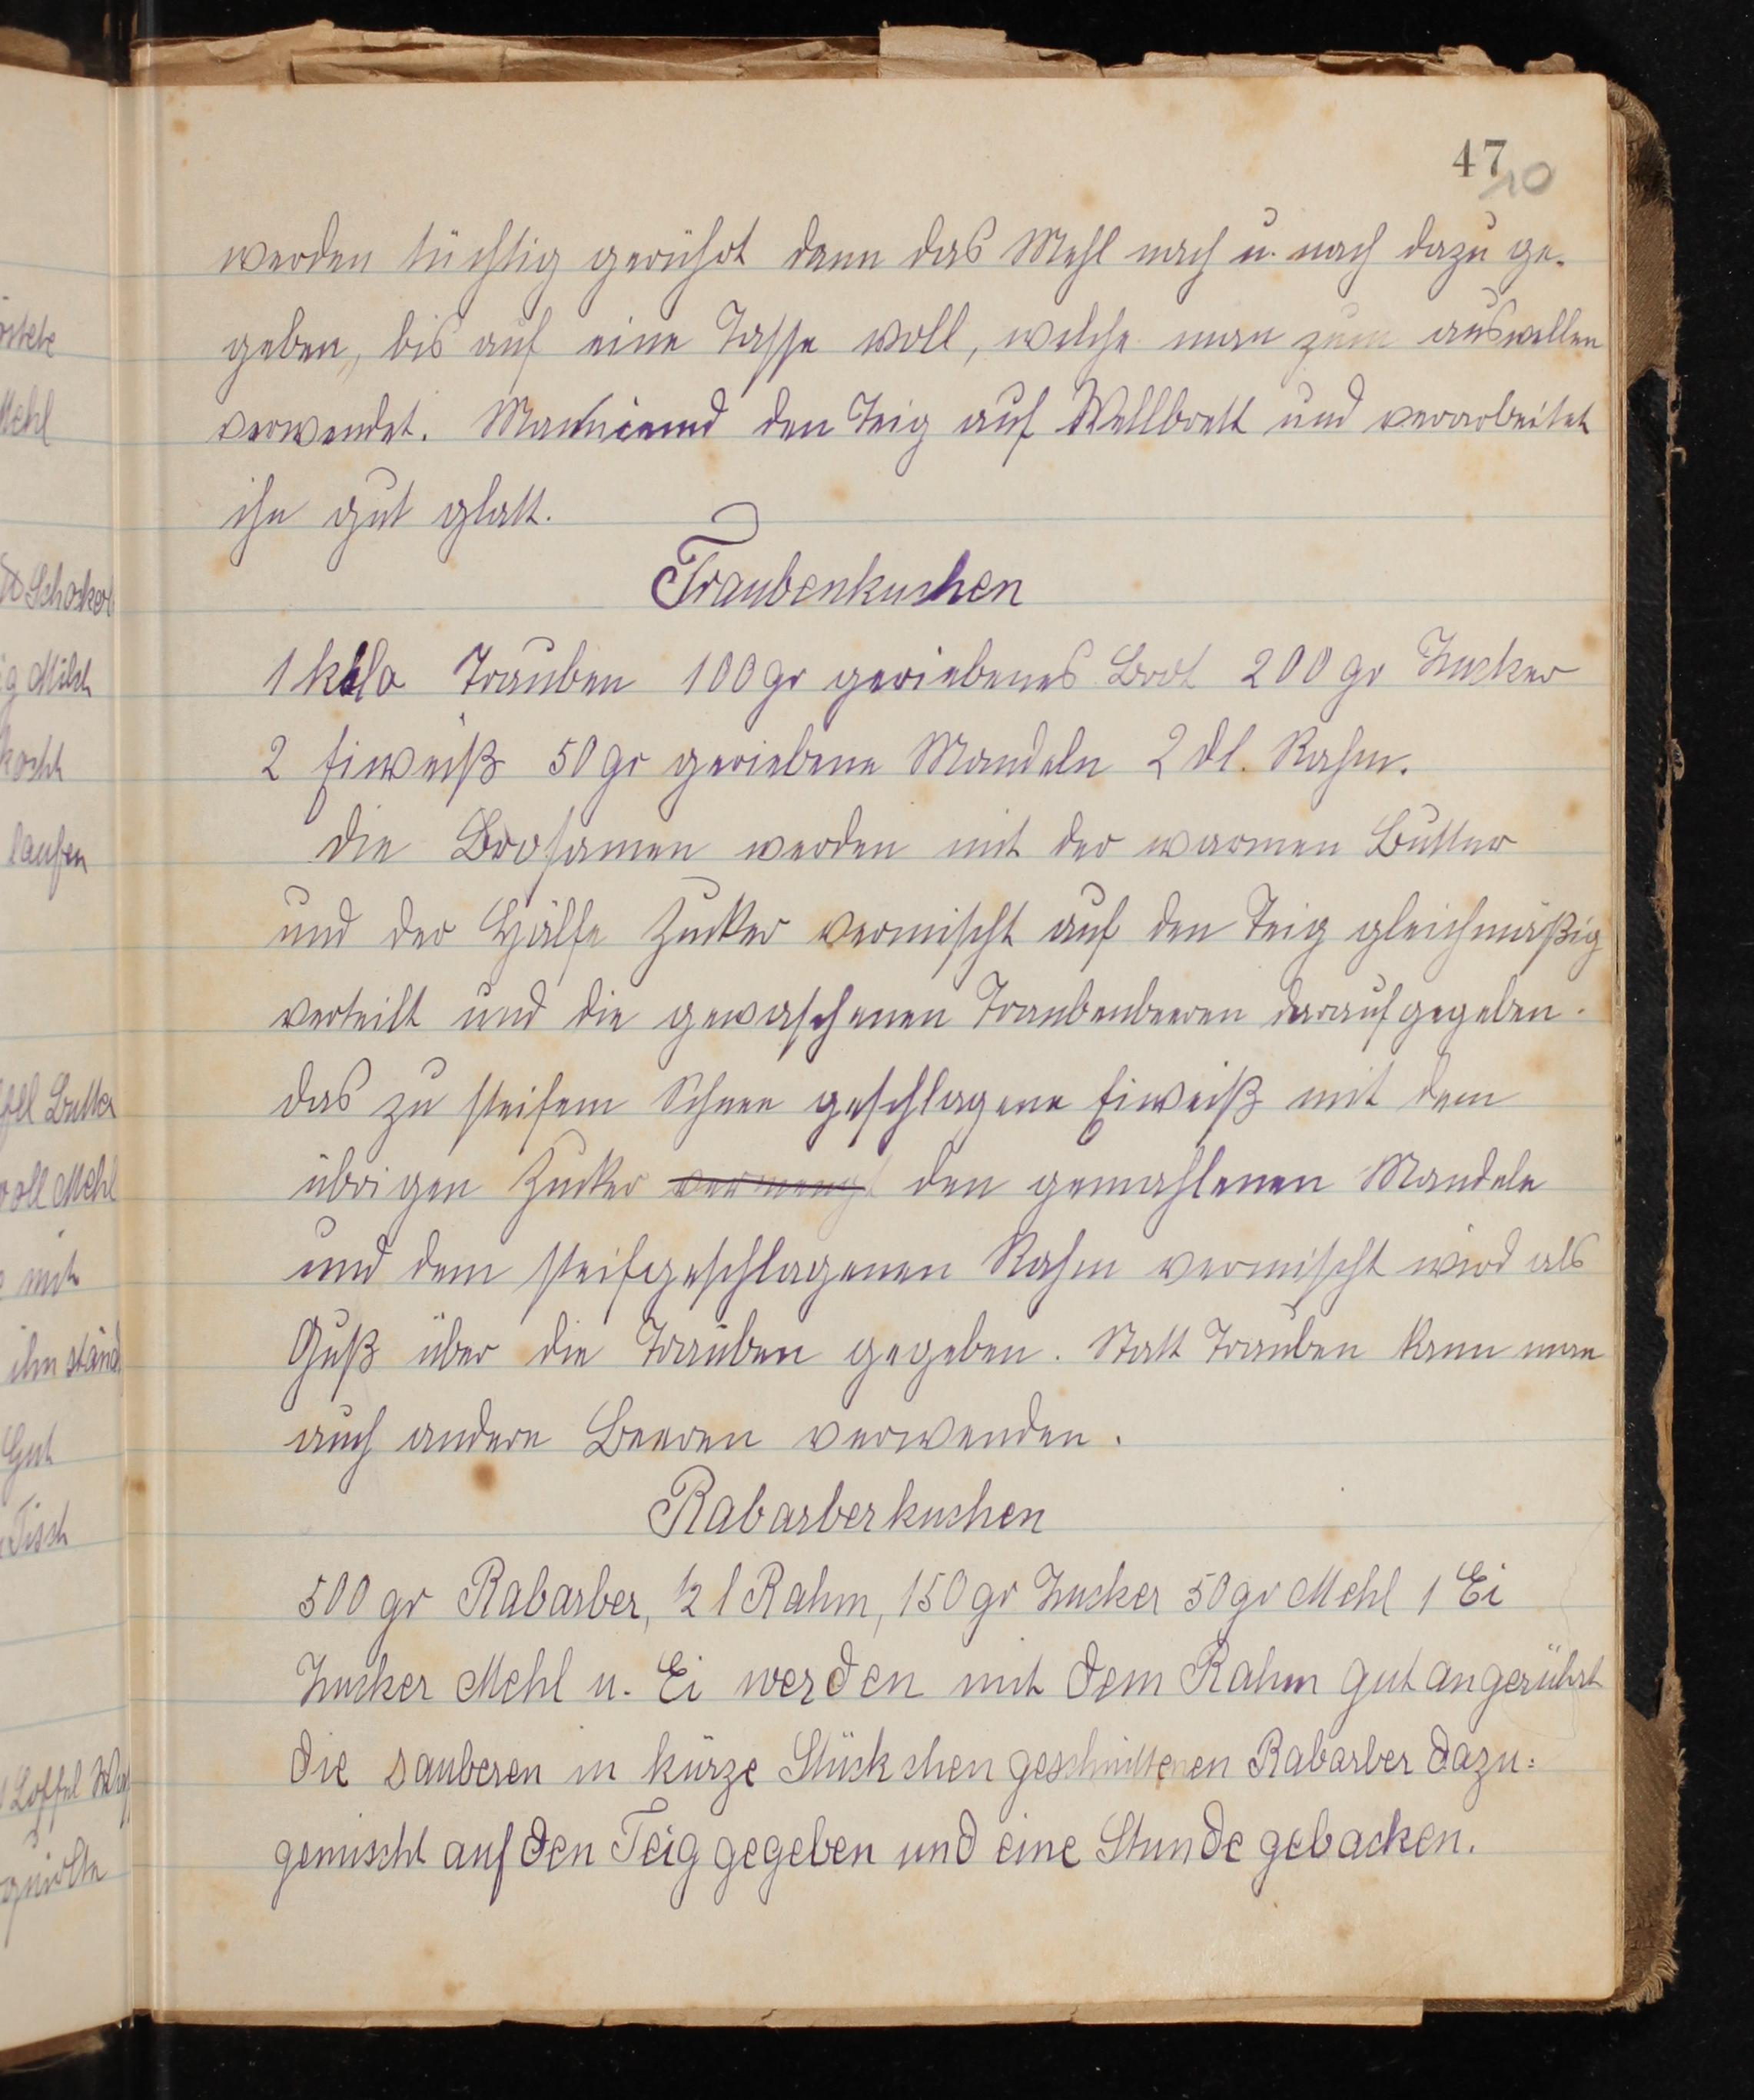 47
10
örtete
Mehl
Schokol
g Milch
kocht
laufen
Butter
voll Mehl
mit
ihn ständ
Gut
Tisch
Löffel
werden tüchtig gerührt dann das Mehl nach u. nach dazu ge-
geben, bis auf eine Tasse voll, welche man zum auswellen
verwendet. Man den Teig auf Wellbrett und verarbeitet
ihn gut glatt.
Traubenkuchen
1 kilo Trauben 100 gr geriebenes Brot 200 gr Zucker
2 Eiweiß 50 gr geriebene Mandeln 2 dl. Rahm.
die Brosamen werden mit der warmen Butter
und der Hälfe Zucker vermischt auf den Teig gleichmäßig
verteilt und die gewaschenen Traubenbeeren darauf gegeben.
das zu steifem Schnee geschlagene Eiweiß mit dem
übrigen Zucker vermengt den gemahlenen Mandeln
und dem steifgeschlagenen Rahm vermischt wird als
Guß über die Trauben gegeben. Statt Trauben kann man
auch andere Beeren verwenden.
Rabarberkuchen
500 gr Rabarber, ½ l Rahm, 150 gr Zucker 50 gr Mehl 1 Ei
Zucker Mehl u. Ei werden mit dem Rahm gut angerührt
die sauberen in kürze Stückchen geschnittenen Rabarber dazu=
gemischt auf den Teig gegeben und eine Stunde gebacken.